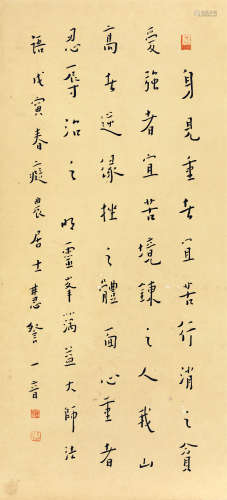 身見重者宜苦行消之貪
愛強者宜苦境鍊之人我山
高者逆緣挫之體面心重者
忍辱治之 明靈峯蕅益大師法
語戊寅春癡晨居士慧詧一音